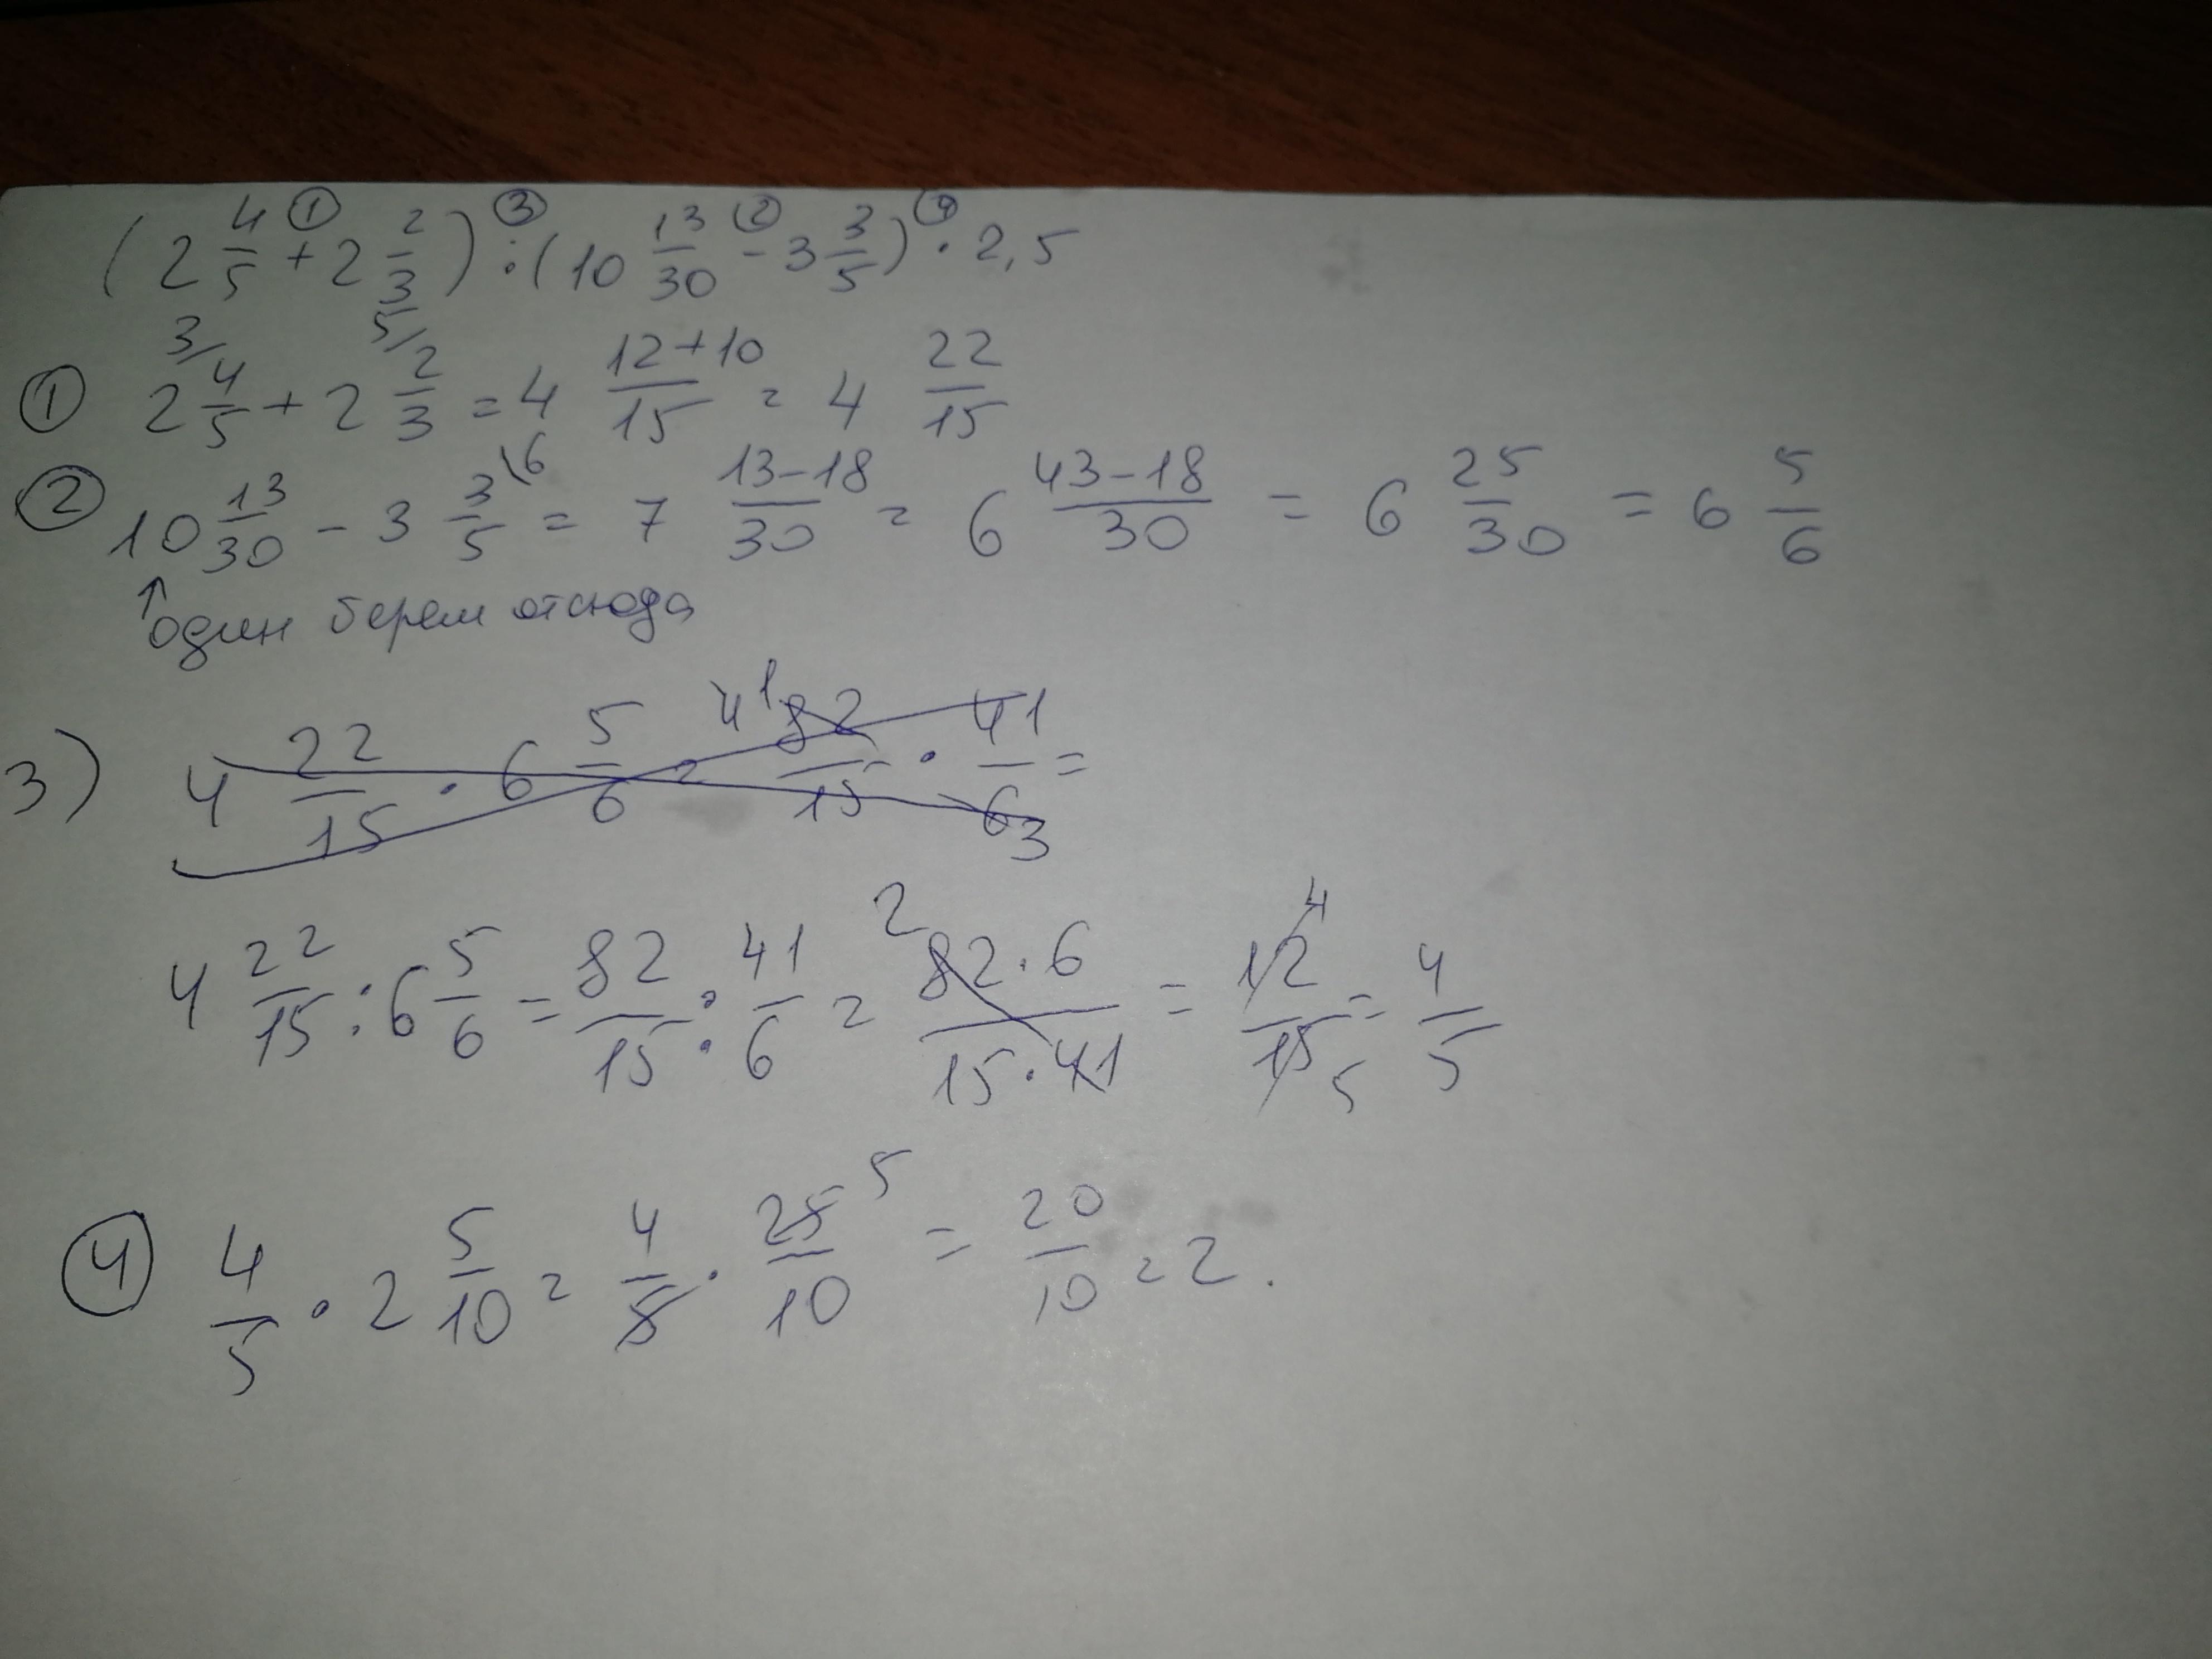 (2 4/5 + 2 2/3) : (10 13/30 - 3 3/5) · 2,5
① 2 4/5 + 2 2/3 = 4 12+10/15 = 4 22/15
② 10 13/30 - 3 3/5 \6 = 7 13-18/30 = 6 43-18/30 = 6 25/30 = 6 5/6
↑ один берем отсюда
3) 4 22/15 · 6 5/6 = 82/15 · 41/6 =
4 22/15 : 6 5/6 = 82/15 : 41/6 = 82·6/15·41 = 12/15 = 4/5
④ 4/5 · 2 5/10 = 4/5 · 25/10 = 20/10 = 2.